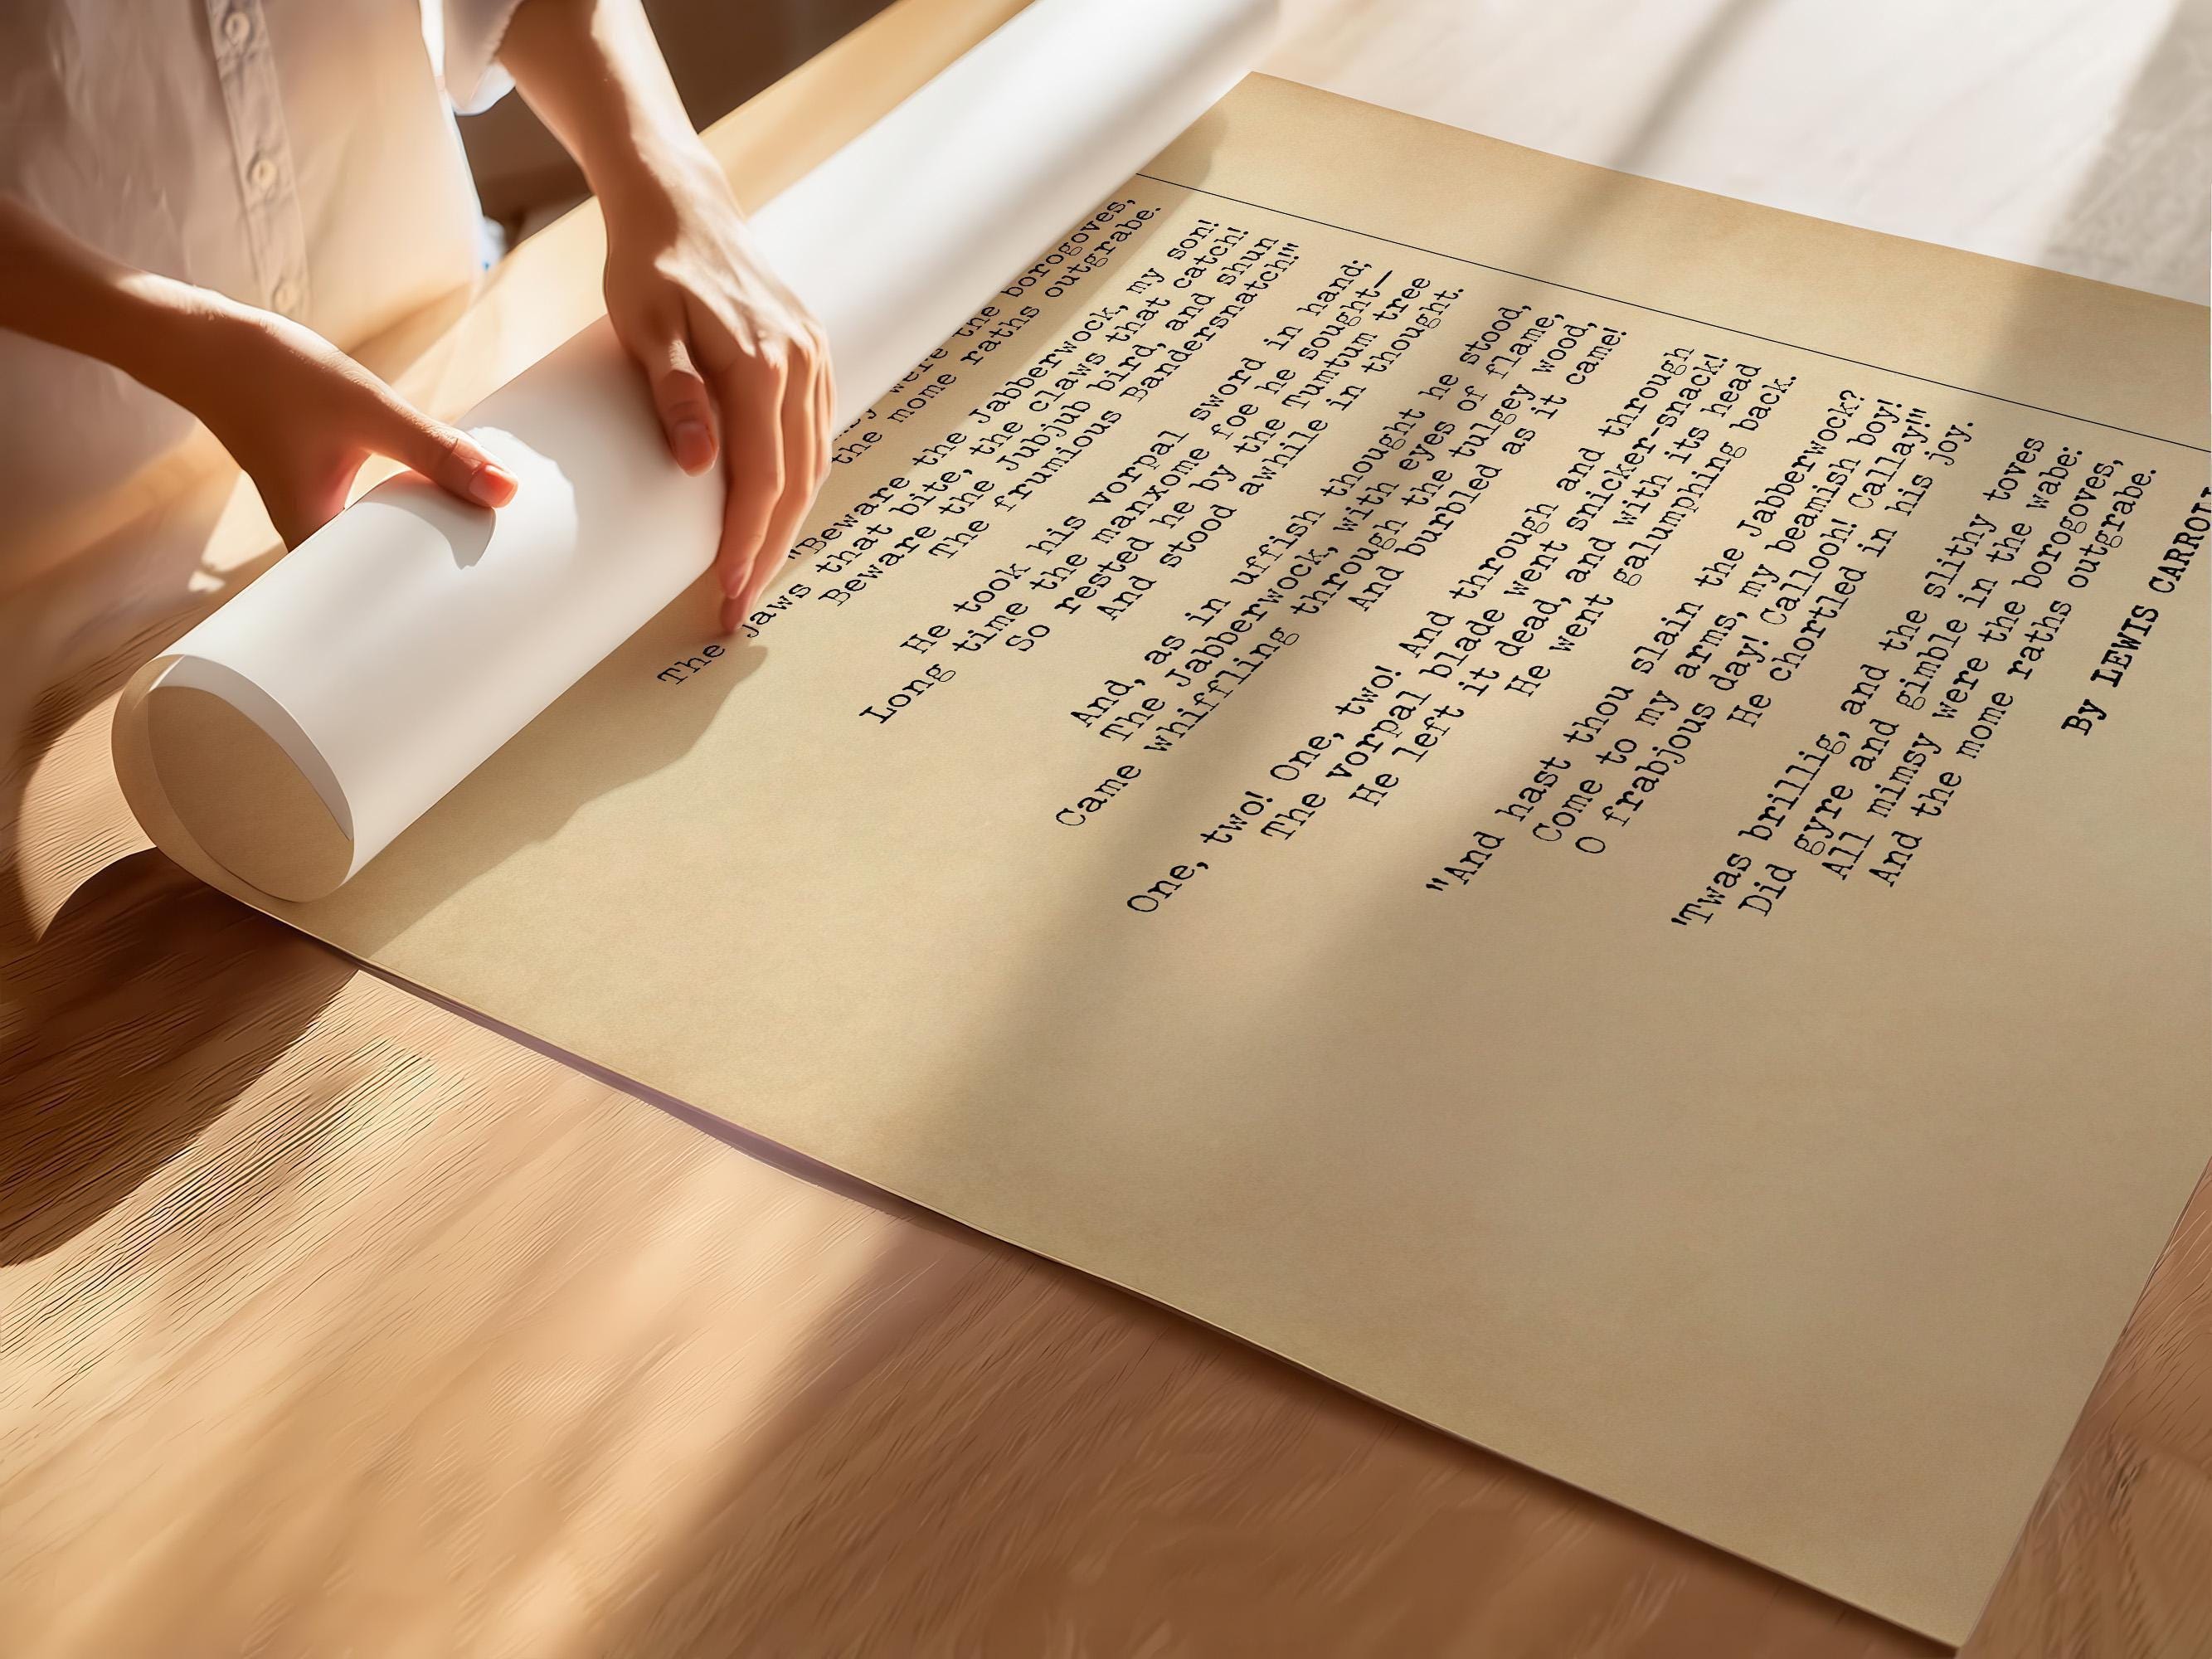 were the borogoves,
the mome raths outgrabe.
"Beware the Jabberwock, my son!
The jaws that bite, the claws that catch!
Beware the Jubjub bird, and shun
The frumious Bandersnatch!"
He took his vorpal sword in hand;
Long time the manxome foe he sought—
So rested he by the Tumtum tree
And stood awhile in thought.
And, as in uffish thought he stood,
The Jabberwock, with eyes of flame,
Came whiffling through the tulgey wood,
And burbled as it came!
One, two! One, two! And through and through
The vorpal blade went snicker-snack!
He left it dead, and with its head
He went galumphing back.
"And hast thou slain the Jabberwock?
Come to my arms, my beamish boy!
O frabjous day! Callooh! Callay!"
He chortled in his joy.
'Twas brillig, and the slithy toves
Did gyre and gimble in the wabe:
All mimsy were the borogoves,
And the mome raths outgrabe.
By LEWIS